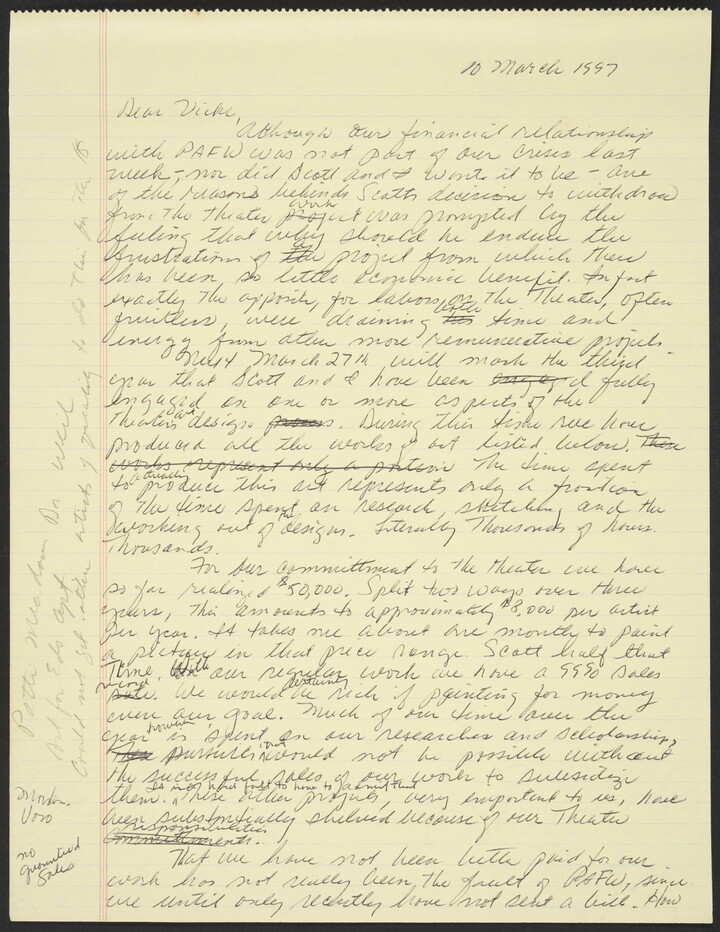 10 March 1997
Dear Vicki,
Although our financial relationship
with PAFW was not part of our crisis last
week – nor did Scott and I want it to be – one
of the reasons behinds Scotts decision to withdraw
from the theater project work was prompted by the
feeling that why should he endure the
frustrations of the a project from which there
has been so little economic benefit. In fact
exactly the opposite, for labors on the Theater, often
fruitless, were draining his both time and
energy from other more remunerative projects
Next March 27th will mark the third
year that Scott and I have been engaged fully
engaged on one or more aspects of the
Theaters art designs. During this time we have
produced all the works of art listed below. These
works represent only a portion The time spent
to actually produce this art represents only a fraction
of the time spent on research, sketching and the
working out of the designs. Literally Thousands of hours.
Thousands.
For our committment to the theater we have
so far realized $50,000. Split two ways over three
years, this amounts to approximately $8,000 per artist
per year. It takes me about one month to paint
a picture in that price range. Scott half that
time. With our regular work we have a 99% sales
record. We would certainly be rich if painting for money
were our goal. Much of our time over the
year however, is spent on our researches and scholarship,
pursuits that would not be possible without
the successful sales of our work to subsidize
them. It is very hard to have to admit that
These other projects, very important to us, have
been substantially shelved because of our Theater
committments. responsibilities
That we have not been better paid for our
work has not really been the fault of PAFW, since
we until only recently have not sent a bill. How
Could not get other artists of quality to do this for the $
Dr Weil
no
guaranteed
Sales